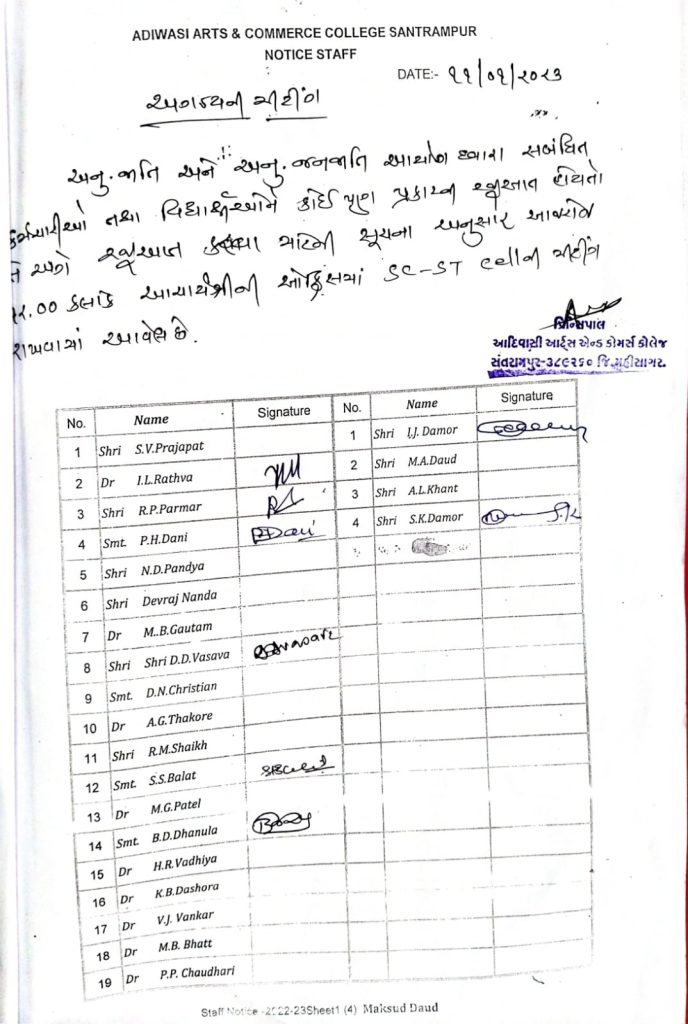 ADIWASI ARTS & COMMERCE COLLEGE SANTRAMPUR
NOTICE STAFF
DATE:- ૧૧/૦૧/૨૦૨૩
અગત્યની મીટીંગ
અનુ.જાતિ અને અનુ.જનજાતિ આયોગ દ્વારા સબંધિત
કર્મચારીઓ તથા વિદ્યાર્થીઓને કોઈ પણ પ્રકારની રજૂઆત હોયતો
તે અંગે રજૂઆત કરવા માટેની સૂચના અનુસાર આજરોજ
૧૨.૦૦ કલાકે આચાર્યશ્રીની ઓફિસમાં SC-ST Cell ની મીટીંગ
રાખવામાં આવેલ છે.
પ્રિન્સિપાલ
આદિવાસી આર્ટ્સ એન્ડ કોમર્સ કોલેજ
સંતરામપુર-૩૮૯૨૬૦ જિ.મહીસાગર.
No. Name Signature No. Name Signature
1 Shri S.V.Prajapat 1 Shri I.J. Damor
2 Dr I.L.Rathva 2 Shri M.A.Daud
3 Shri R.P.Parmar 3 Shri A.L.Khant
4 Smt. P.H.Dani PHDani 4 Shri S.K.Damor
5 Shri N.D.Pandya
6 Shri Devraj Nanda
7 Dr M..B.Gautam
8 Shri Shri D.D.Vasava
9 Smt. D.N.Christian
10 Dr A.G.Thakore
11 Shri R.M.Shaikh
12 Smt. S.S.Balat
13 Dr M.G.Patel
14 Smt. B.D.Dhanula
15 Dr H.R.Vadhiya
16 Dr K.B.Dashora
17 Dr V.J. Vankar
18 Dr M.B. Bhatt
19 Dr P.P. Chaudhari
Staff Notice -2022-23Sheet1 (4) Maksud Daud